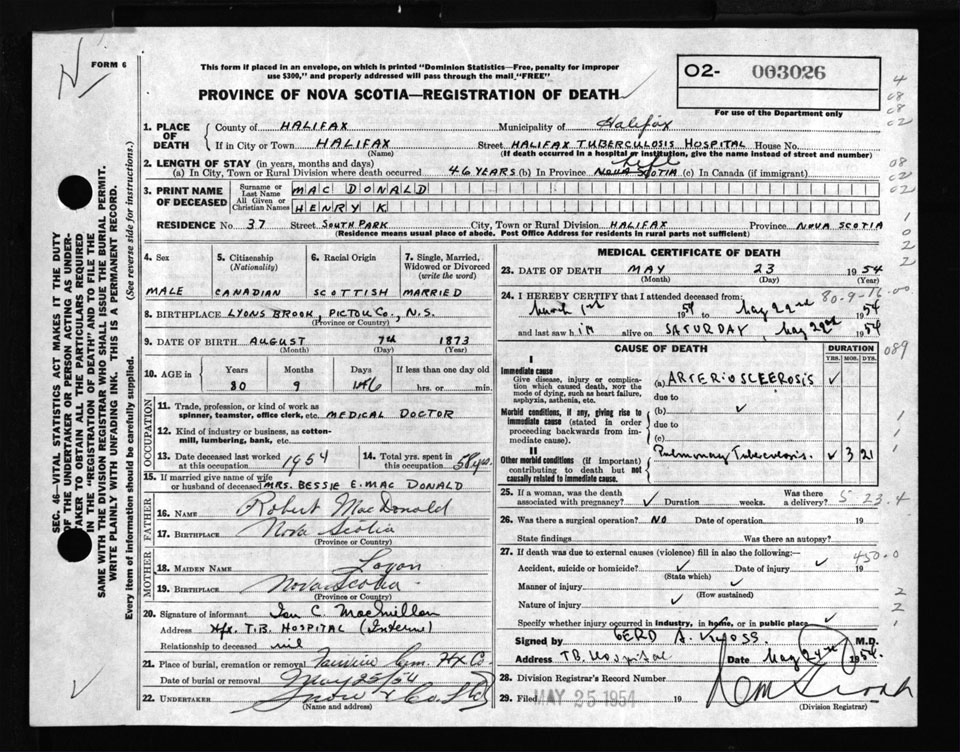 FORM 6
This form if placed in an envelope, on which is printed "Dominion Statistics—Free, penalty for improper
use $300," and properly addressed will pass through the mail "FREE"
PROVINCE OF NOVA SCOTIA—REGISTRATION OF DEATH
O2- 003026
For use of the Department only
1. PLACE OF DEATH
County of HALIFAX Municipality of Halifax
If in City or Town HALIFAX Street HALIFAX TUBERCULOSIS HOSPITAL House No.
(Name) (If death occurred in a hospital or institution, give the name instead of street and number)
2. LENGTH OF STAY (in years, months and days) Life
(a) In City, Town or Rural Division where death occurred 46 YEARS (b) In Province NOVA SCOTIA (c) In Canada (if immigrant)
3. PRINT NAME OF DECEASED
Surname or Last Name MAC DONALD
All Given or Christian Names HENRY K
RESIDENCE No. 37 Street SOUTH PARK City, Town or Rural Division HALIFAX Province NOVA SCOTIA
(Residence means usual place of abode. Post Office Address for residents in rural parts not sufficient)
4. Sex
MALE
5. Citizenship
(Nationality)
CANADIAN
6. Racial Origin
SCOTTISH
7. Single, Married,
Widowed or Divorced
(write the word)
MARRIED
8. BIRTHPLACE LYONS BROOK, PICTOU CO., N.S.
(Province or Country)
9. DATE OF BIRTH AUGUST 7th 1873
(Month) (Day) (Year)
10. AGE in Years Months Days If less than one day old
80 9 hrs. or min.
OCCUPATION
11. Trade, profession, or kind of work as
spinner, teamster, office clerk, etc. MEDICAL DOCTOR
12. Kind of industry or business, as cotton-
mill, lumbering, bank, etc.
13. Date deceased last worked
at this occupation 1954
14. Total yrs. spent in
this occupation 58 yrs.
15. If married give name of wife
or husband of deceased MRS. BESSIE E. MAC DONALD
FATHER
16. NAME Robert MacDonald
17. BIRTHPLACE Nova Scotia
(Province or Country)
MOTHER
18. MAIDEN NAME Logan
19. BIRTHPLACE Nova Scotia
(Province or Country)
20. Signature of informant Ian C. MacMillan
Address Hfx. T.B. HOSPITAL (Interne)
Relationship to deceased nil
21. Place of burial, cremation or removal Fairview Cem. Hx Co.
Date of burial or removal May 25/54
22. UNDERTAKER Snow & Co. Ltd
(Name and address)
MEDICAL CERTIFICATE OF DEATH
23. DATE OF DEATH MAY 23 1954
(Month) (Day) (Year)
80-9-16.00
24. I HEREBY CERTIFY that I attended deceased from
March 1st 1954 to May 22nd 1954
and last saw him alive on SATURDAY, May 22nd 1954
CAUSE OF DEATH
DURATION
YRS. MOS. DYS.
089
I
Immediate cause
Give disease, injury or complica-
tion which caused death, NOT the
mode of dying, such as heart failure,
asphyxia, asthenia, etc.
(a) ARTERIOSCLEROSIS
due to
Morbid conditions, if any, giving rise to
immediate cause (stated in order
proceeding backwards from im-
mediate cause).
(b)
due to
(c)
II
Other morbid conditions (if important)
contributing to death but not
causally related to immediate cause.
Pulmonary Tuberculosis. 3 21
25. If a woman, was the death
associated with pregnancy? Duration weeks. Was there
a delivery?
S 23.4
26. Was there a surgical operation? NO Date of operation 19
State findings Was there an autopsy?
27. If death was due to external causes (violence) fill in also the following:—
450.0
Accident, suicide or homicide? Date of injury 19
(State which)
Manner of injury
(How sustained)
Nature of injury
Specify whether injury occurred in industry, in home, or in public place
Signed by GERD A. KLOSS. M.D.
Address T.B. Hospital Date May 24th 1954.
28. Division Registrar's Record Number
29. Filed MAY 25 1954 19
(Division Registrar)
SEC. 46—VITAL STATISTICS ACT MAKES IT THE DUTY
OF THE UNDERTAKER OR PERSON ACTING AS UNDER-
TAKER TO OBTAIN ALL THE PARTICULARS REQUIRED
IN THE "REGISTRATION OF DEATH" AND TO FILE THE
SAME WITH THE DIVISION REGISTRAR WHO SHALL ISSUE THE BURIAL PERMIT.
WRITE PLAINLY WITH UNFADING INK. THIS IS A PERMANENT RECORD.
Every item of information should be carefully supplied. (See reverse side for instructions.)